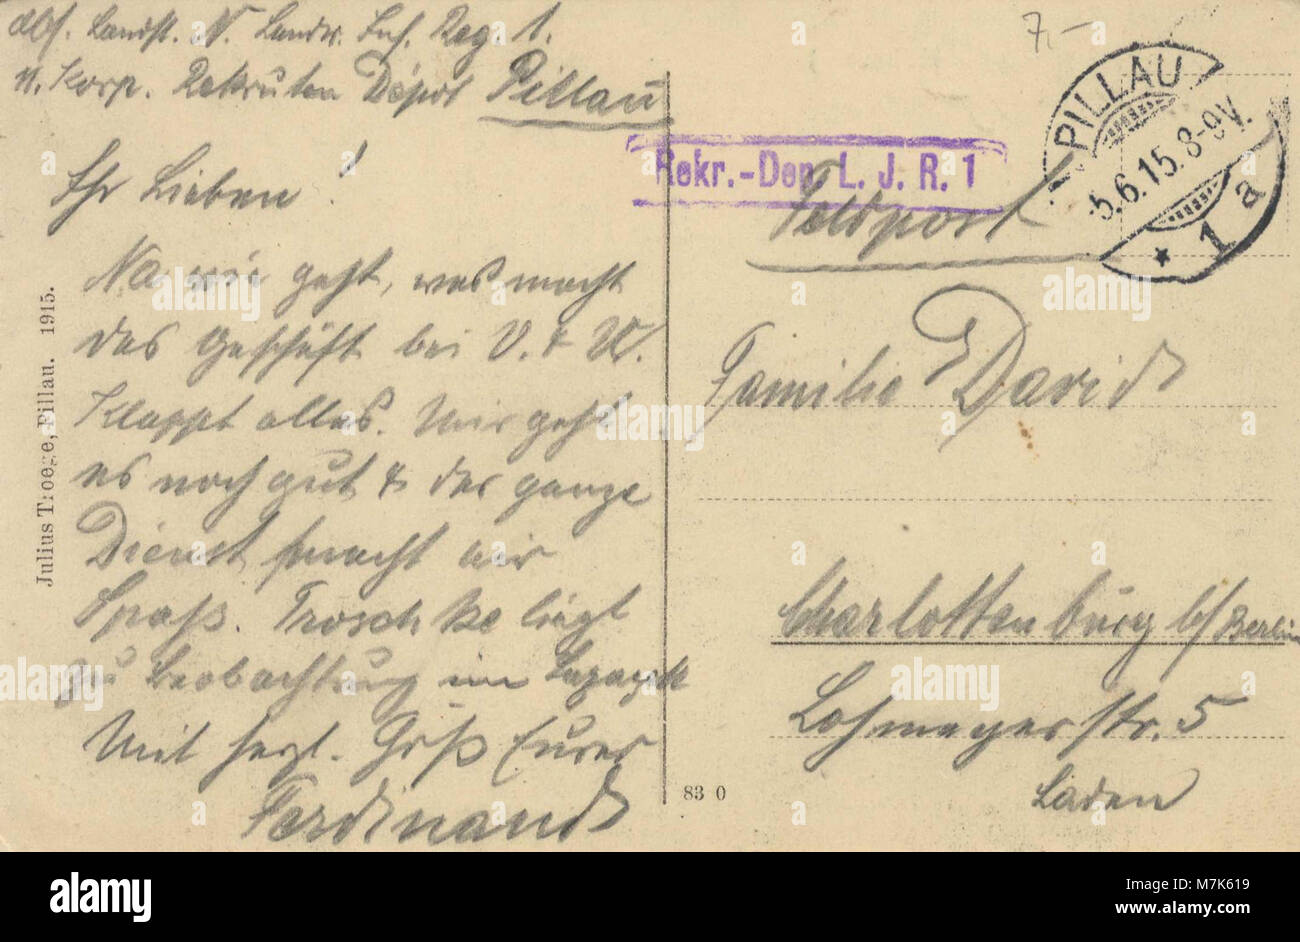 Abs. Landst. V. Landw. Inf. Reg. 1.
II. Korp. Rekruten Depot Pillau
7.-
PILLAU
-5.6.15.8-9V.
* 1 a
Rekr.-Dep. L. J. R. 1
Feldpost
Ihr Lieben!
Na wie geht, was macht
das Geschäft bei V. & W.
Klappt alles. Mir geht
es noch gut & der ganze
Dienst macht mir
Spaß. Troschke liegt
zu Beobachtung im Lazarett
Mit herzl. Gruß Eurer
Ferdinand
Familie David
Charlottenburg b/Berlin
Lohmeyerstr. 5
Laden
Julius Troege, Pillau. 1915.
83 0
alamy
Image ID: M7K619
www.alamy.com